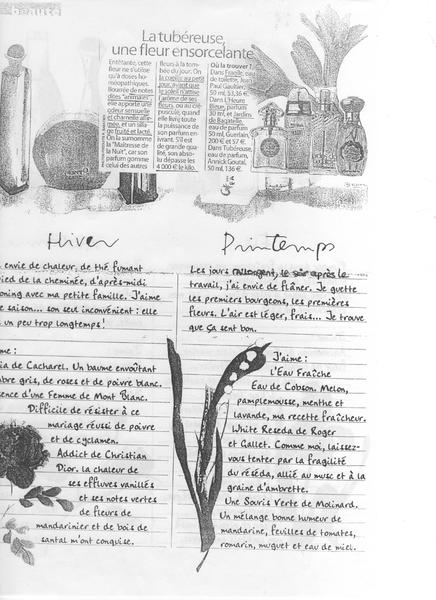 beauté
La tubéreuse,
une fleur ensorcelante
Entêtante, cette
fleur ne s'utilise
qu'à doses ho-
méopathiques.
Bourrée de notes
dites "animales",
elle apporte une
odeur sensuelle
et charnelle alliée
et un silla-
ge fruité et lacté.
On la surnomme
la "Maîtresse de
la Nuit", car son
parfum gomme
celui des autres
fleurs à la tom-
bée du jour. On
la cueille au petit
jour, avant que
le soleil n'attise
l'arôme de ses
fleurs, ou au cré-
puscule, quand
elle livre toute
la puissance de
son parfum en-
ivrant. S'il est
de grande qua-
lité, son abso-
lu dépasse les
4 000 € le kilo.
Où la trouver ?
Dans Fragile, eau
de toilette, Jean
Paul Gaultier,
50 ml, 53,36 €.
Dans L'Heure
Bleue, parfum,
30 ml, et Jardins
de Bagatelle,
eau de parfum,
50 ml, Guerlain,
200 € et 57 €.
Dans Tubéreuse,
eau de parfum,
Annick Goutal,
50 ml, 136 €.
Hiver
envie de chaleur, de thé fumant
pied de la cheminée, d'après-midi
ooning avec ma petite famille. J'aime
saison... son seul inconvénient : elle
un peu trop longtemps !
me :
ia de Cacharel. Un baume envoûtant
mbre gris, de roses et de poivre blanc.
sence d'une Femme de Mont Blanc.
Difficile de résister à ce
mariage réussi de poivre
et de cyclamen.
Addict de Christian
Dior. La chaleur de
ses effluves vanillés
et ses notes vertes
de fleurs de
mandarinier et de bois de
santal m'ont conquise.
Printemps
Les jours rallongent, le soir après le
travail, j'ai envie de flâner. Je guette
les premiers bourgeons, les premières
fleurs. L'air est léger, frais... Je trouve
que ça sent bon.
J'aime :
l'Eau Fraîche
Eau de Cobson. Melon,
pamplemousse, menthe et
lavande, ma recette fraîcheur.
White Reseda de Roger
et Gallet. Comme moi, laissez-
vous tenter par la fragilité
du réséda, allié au musc et à la
graine d'ambrette.
Une Souris Verte de Molinard.
Un mélange bonne humeur de
mandarine, feuilles de tomates,
romarin, muguet et eau de miel.